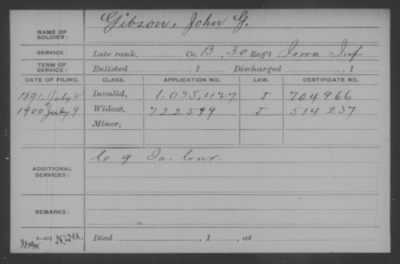 NAME OF SOLDIER: Gibson, John G.
SERVICE: Late rank, Co. B, 30 Reg't Iowa Inf
TERM OF SERVICE: Enlisted , 1 Discharged , 1
DATE OF FILING. CLASS. APPLICATION NO. LAW. CERTIFICATE NO.
1891 July 2 Invalid, 1.035,427 J 704966
1900 July 9 Widow, 722599 J 514237
Minor,
ADDITIONAL SERVICES: Co 9 Ia. Cav.
REMARKS:
Died , 1 , at